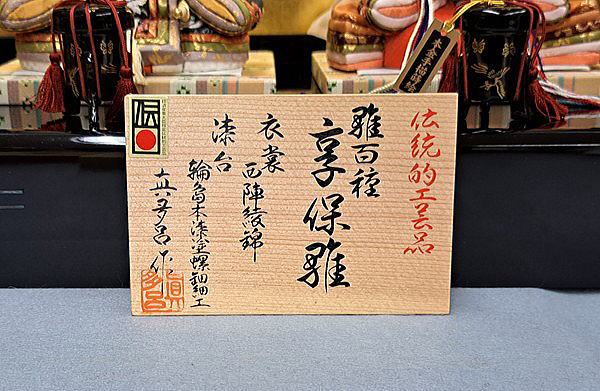 伝統的工芸品
雛百種
享保雛
衣裳
西陣綾錦
漆台
輪島本漆塗螺鈿細工
真多呂作